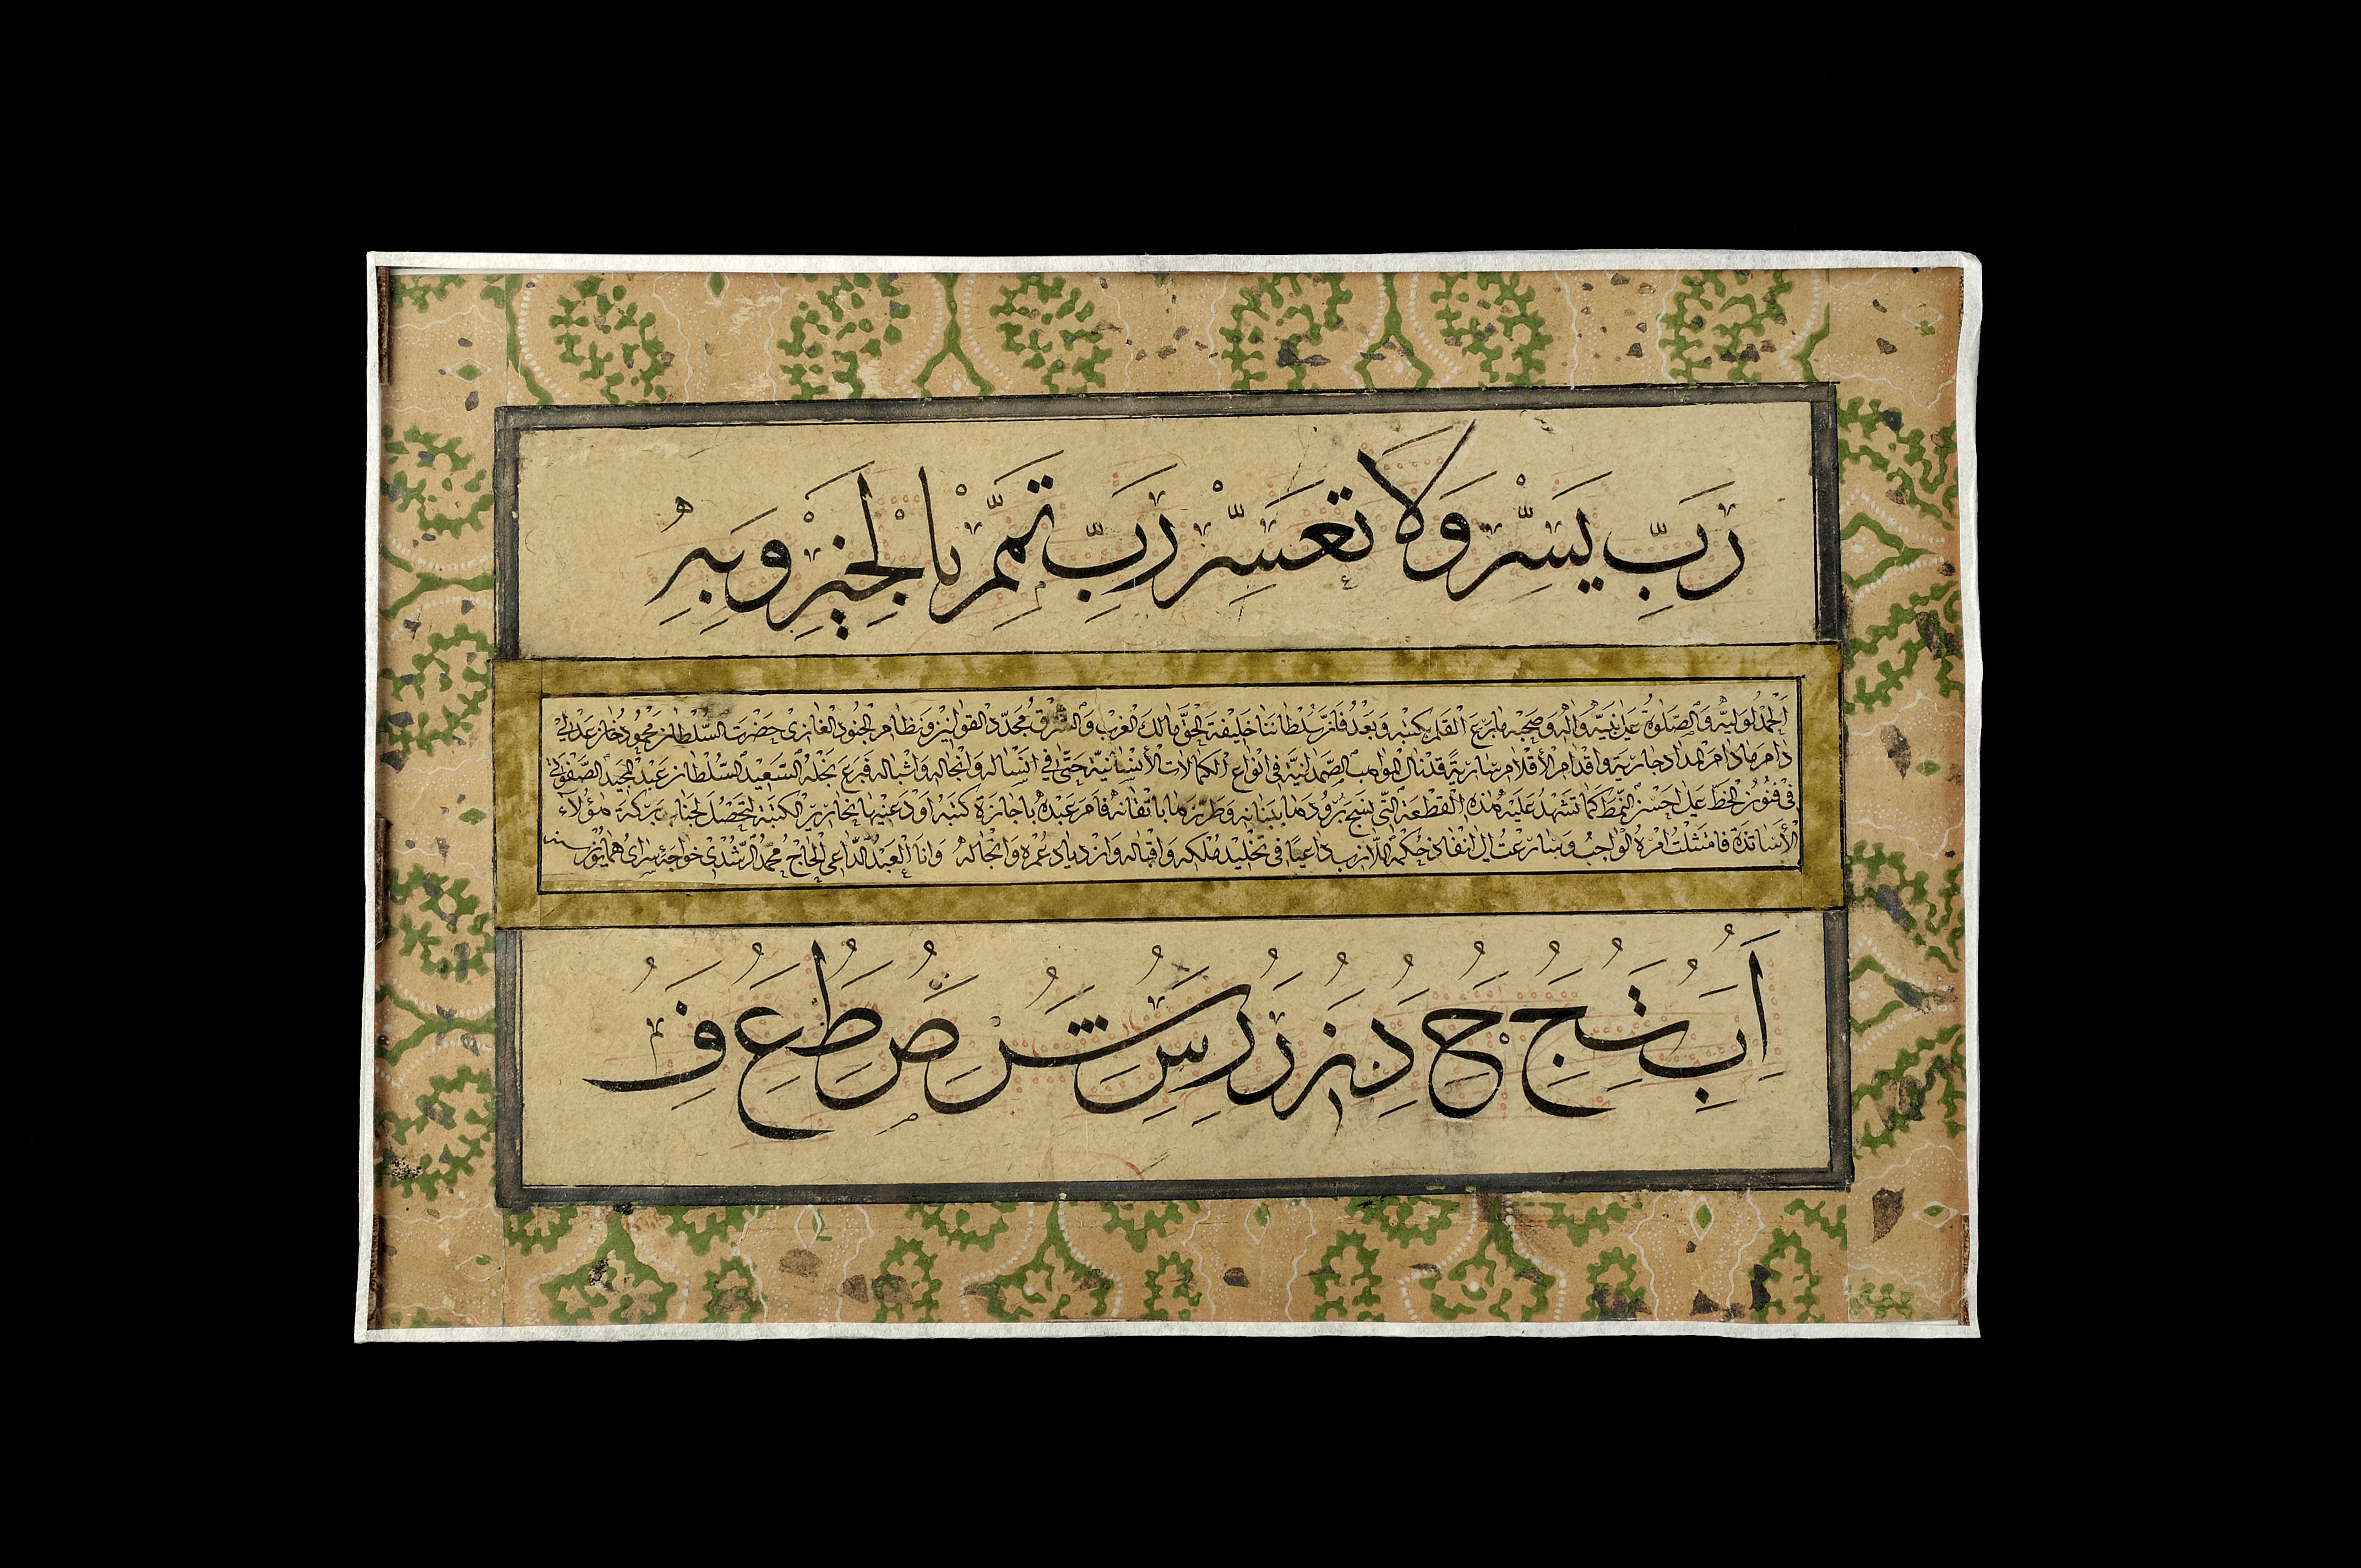 رَبِّ يَسِّرْ وَلَا تُعَسِّرْ رَبِّ تَمِّمْ بِالْخَيْرِ وَبِهِ
الحمد لوليه والصلوة على نبيه واله وصحبه ما برع القلم بكتبه وبعد فان سلطاننا خليفة الحق مالك الغرب والشرق مجدد القوانين ونظام الجنود الغازى حضرت السلطان محمود خان عدلى
دام مادام المداد جارية واقدام الأقلام سارية قد نال المواهب الصمدانية فى انواع الكمالات الأنسانية حتى فى انساله وانجاله واشباله فبرع نجله السعيد السلطان عبد المجيد الصفوانى
فى فنون الخط على احسن النمط كما تشهد عليه هذه القطعة التى نسج برودها ببنانه وطرزها باتقانه فامر عبده باجازة كتبه اودعنيها بخارير الكتبة لتحصل لجنابه بركة هؤلاء
الأساتذة فامتثلت امره الواجب وسارعت الى انفاذ حكمه اللازب داعيا فى تخليد ملكه واقباله وازدياد عمره وانجاله وانا العبد الداعى الحاج محمد الرشدى خواجهٔ سراى همايون
ا ب ت ج ح د ز ر س ش ص ط ع ف